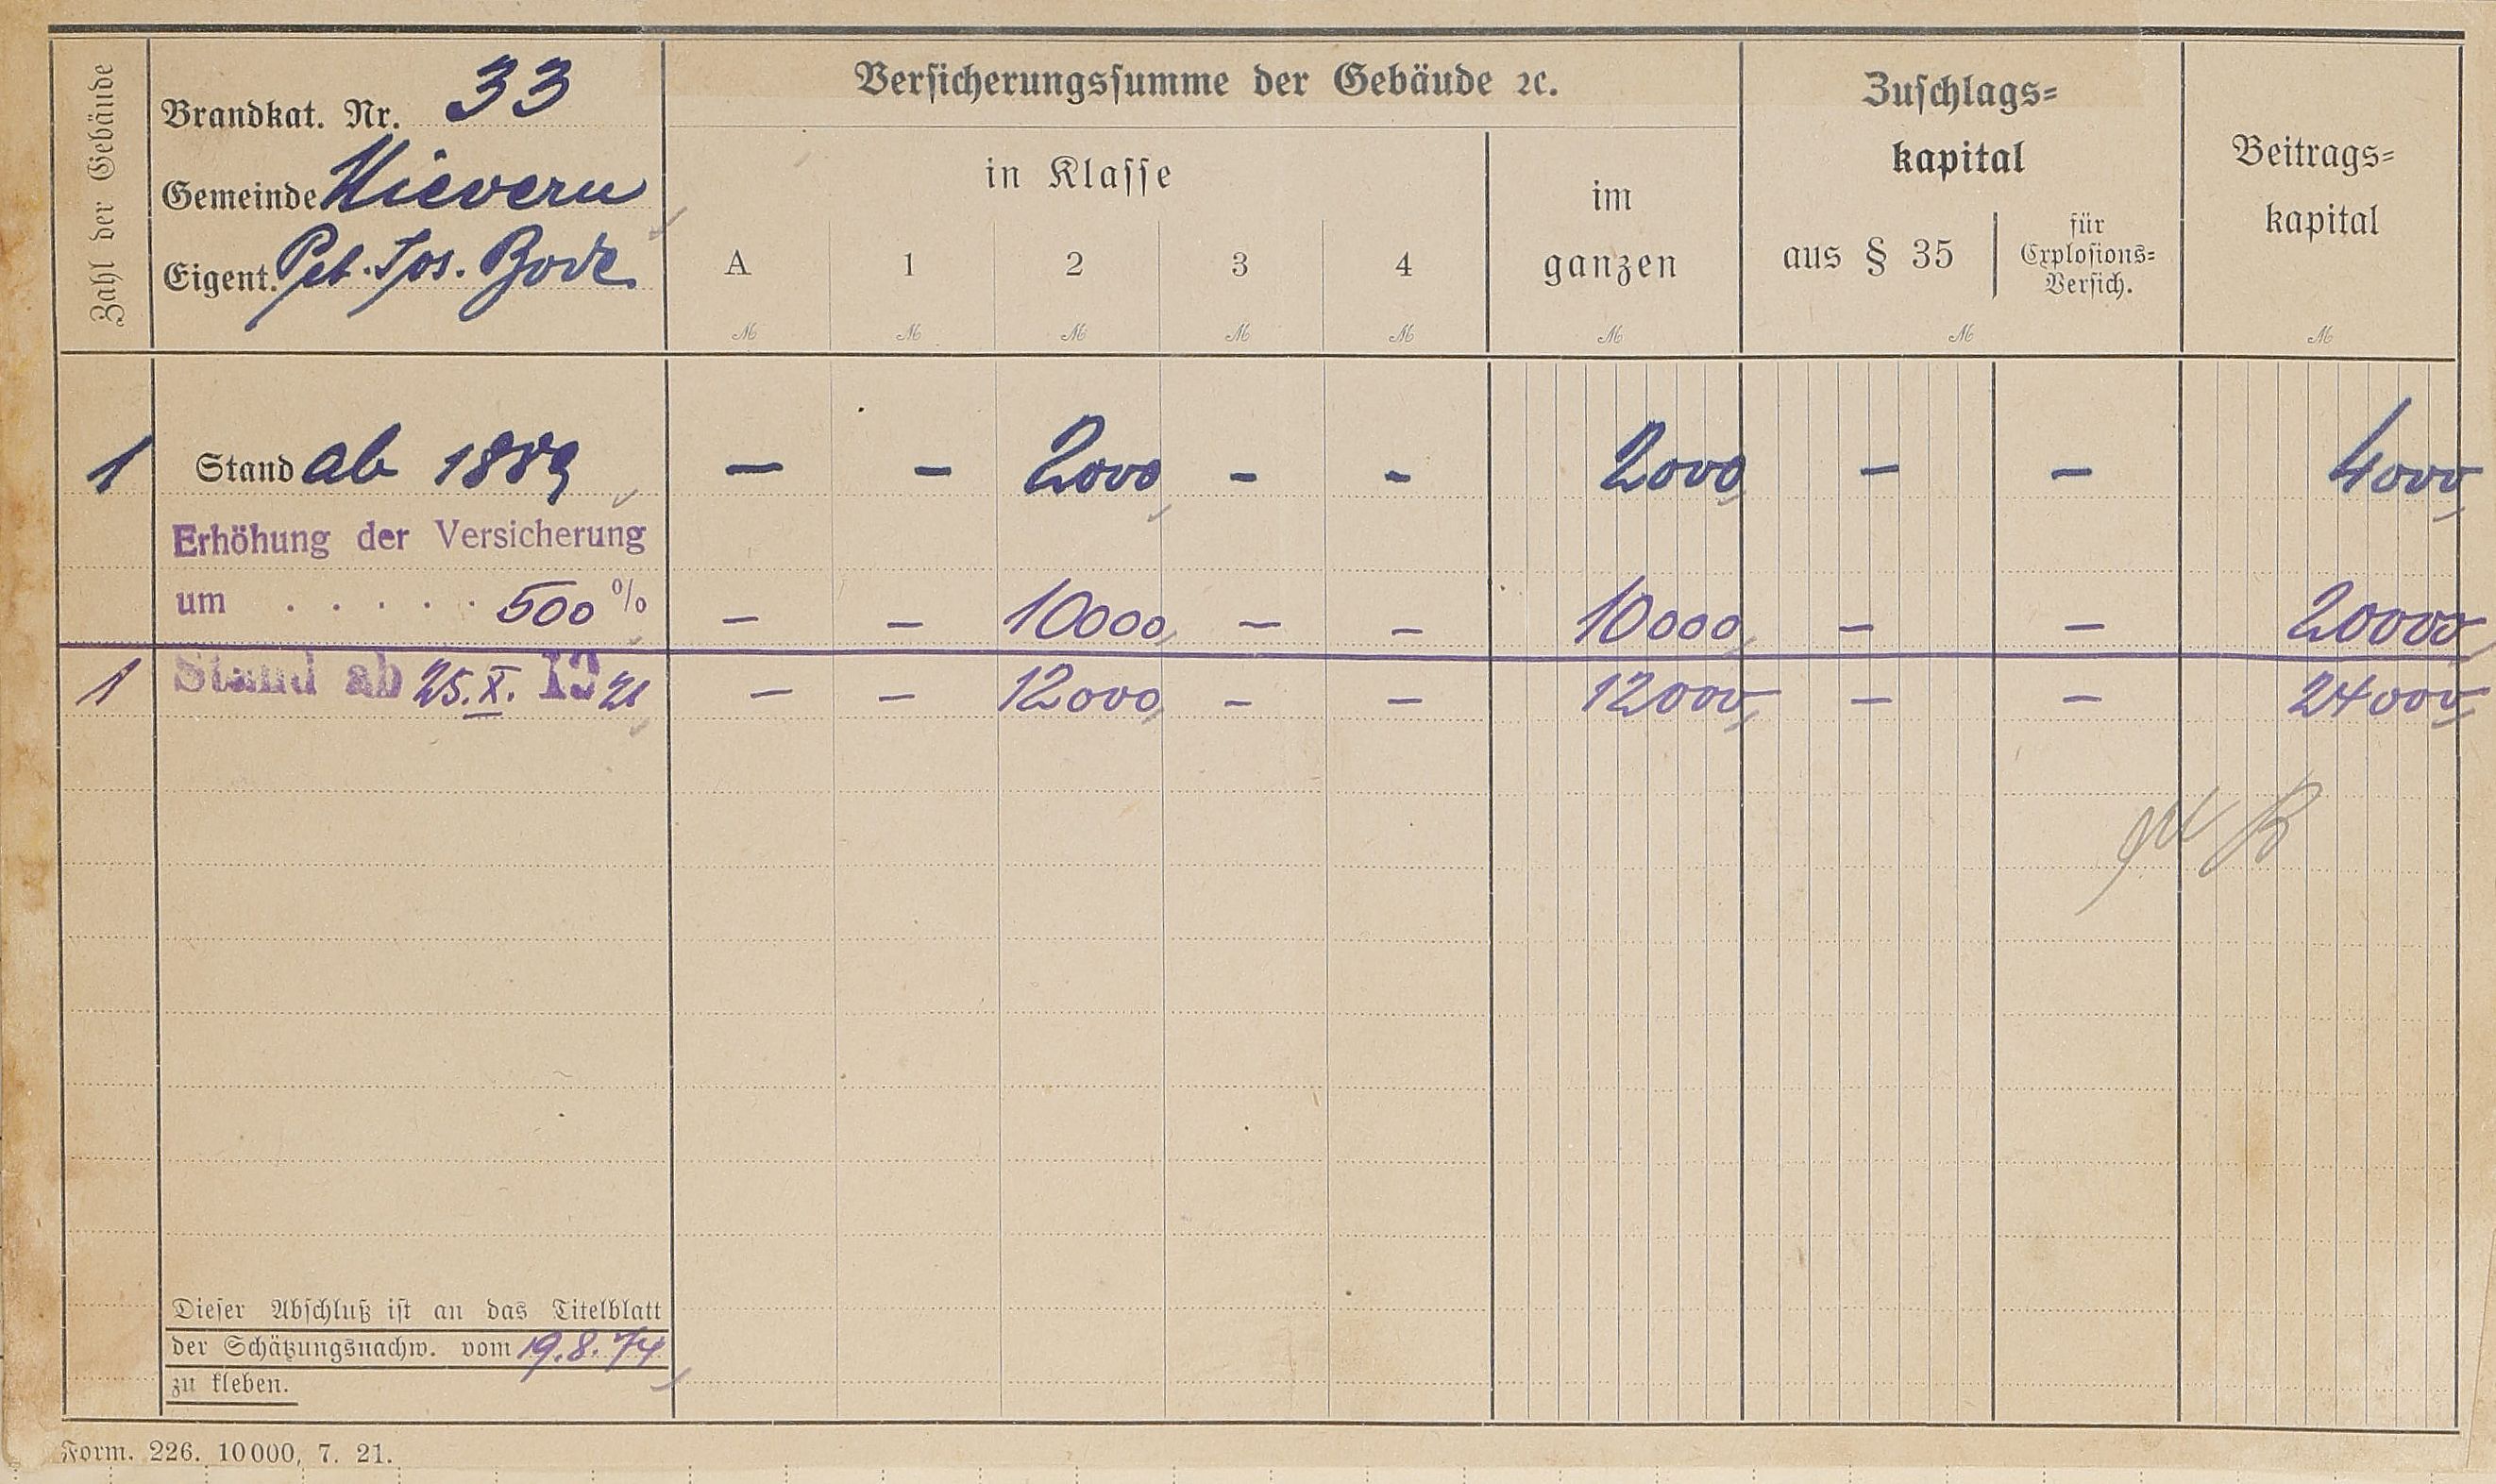 Zahl der Gebäude
Brandkat. Nr. 33
Gemeinde Nievern
Eigent. Pet. Jos. Bode
Versicherungssumme der Gebäude ꝛc.
in Klasse
A 1 2 3 4
ℳ ℳ ℳ ℳ ℳ
im
ganzen
ℳ
Zuschlags=
kapital
aus § 35
für
Explosions=
Versich.
ℳ
Beitrags=
kapital
ℳ
1 Stand ab 1889 – – 2000 – – 2000 – – 4000
Erhöhung der Versicherung
um . . . . . 500 % – – 10000 – – 10000 – – 20000
1 Stand ab 25. X. 1921 – – 12000 – – 12000 – – 24000
Dieser Abschluß ist an das Titelblatt
der Schätzungsnachw. vom 19.8.74
zu kleben.
Form. 226. 10000, 7. 21.